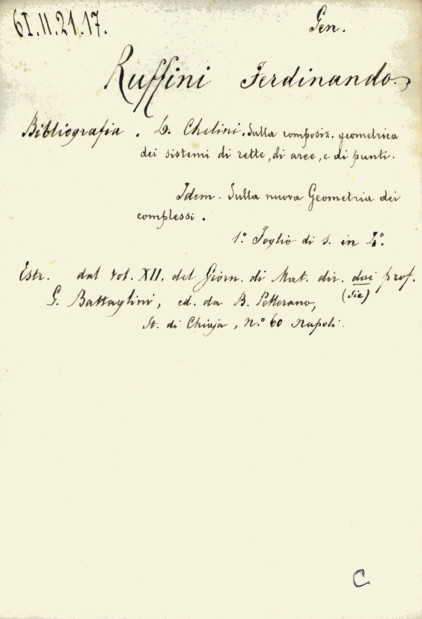 61.11.21.17. Gen.
Ruffini Ferdinando
Bibliografia. D. Chelini. Sulla composiz. geometrica
dei sistemi di rette, di aree, e di punti.
Idem. Sulla nuova Geometria dei
complessi.
1º. Foglio di s. in 4º.
Estr. dal vol. XII. del Giorn. di Mat. dir. dai prof.
(sic)
G. Battaglini, ed. da B. Pellerano,
St. di Chiaja, N.º 60 Napoli.
C